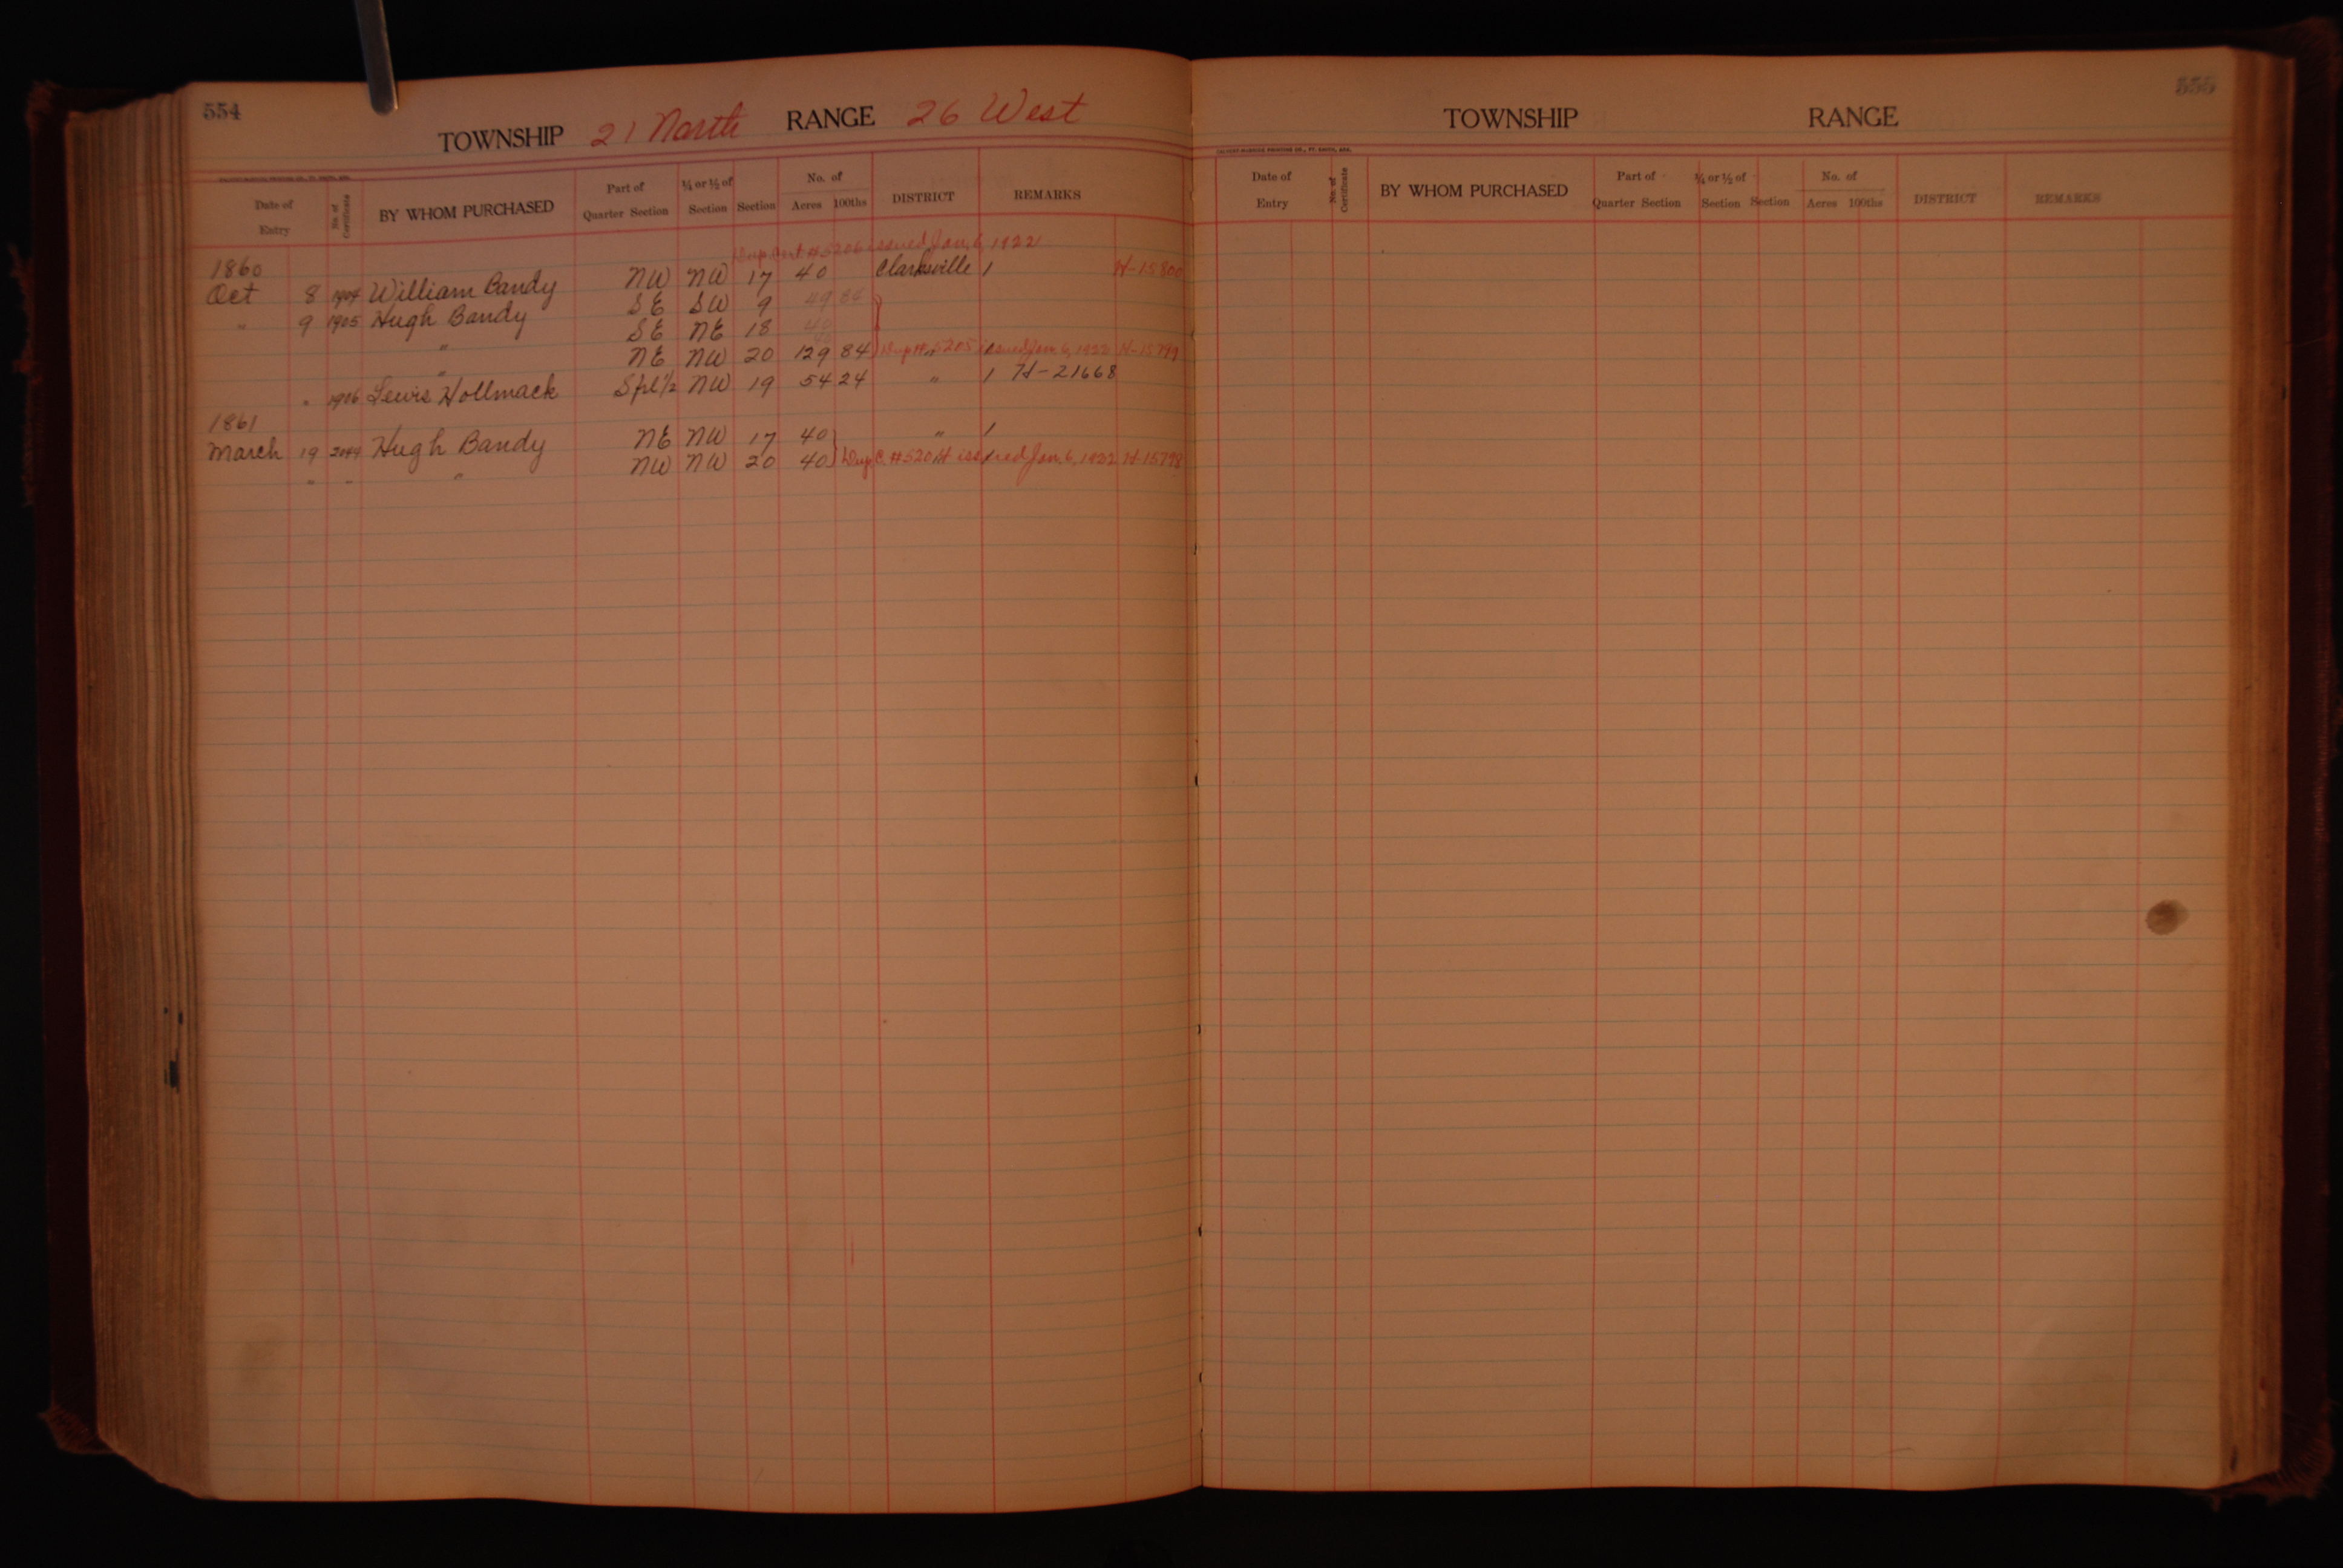 554
TOWNSHIP 21 North RANGE 26 West
Date of Entry No. of Certificate BY WHOM PURCHASED Part of Quarter Section ¼ or ½ of Section Section No. of Acres 100ths DISTRICT REMARKS
Dup. Cert #5206 issued Jan. 6, 1922
1860
Oct 8 1904 William Bandy NW NW 17 40 Clarksville / H-15800
" 9 1905 Hugh Bandy SE SW 9 49 84
" SE NE 18 40
" NE NW 20 129 84 Dup #5205 issued Jan. 6, 1922 H-15799
" 1906 Lewis Hollmack Sfrl ½ NW 19 54 24 " / H-21668
1861
March 19 2044 Hugh Bandy NE NW 17 40 " /
" " " NW NW 20 40 Dup C. #5204 issued Jan. 6, 1922 H-15798
555
TOWNSHIP RANGE
CALVERT-McBRIDE PRINTING CO., FT. SMITH, ARK.
Date of Entry No. of Certificate BY WHOM PURCHASED Part of Quarter Section ¼ or ½ of Section Section No. of Acres 100ths DISTRICT REMARKS